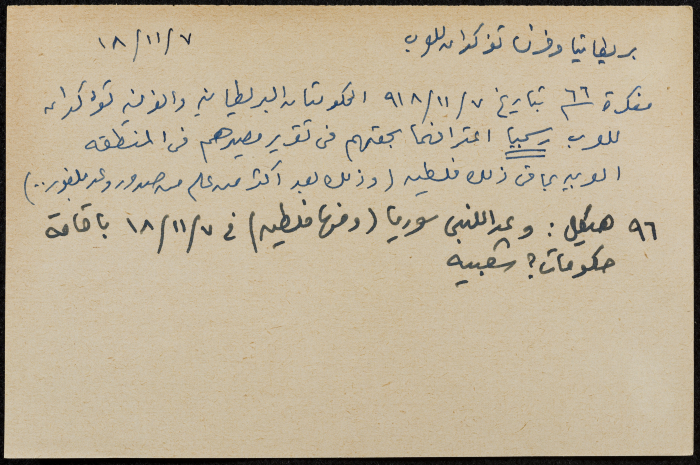 بريطانيا وفرنسا تؤكدان للعرب ١٨/١١/٧
مفكرة ٦٦ بتاريخ ٩١٨/١١/٧ الحكومتان البريطانية والفرنسية تؤكدان
للعرب رسميا اعترافهما بحقهم في تقرير مصيرهم في المنطقة
العربية بما في ذلك فلسطين (وذلك بعد أكثر من عام من صدور وعد بلفور..)
٩٦ هيكل: وعد اللنبي سوريا (ومنها فلسطين) في ١٨/١١/٧ باقامة
حكومات؟ شعبية